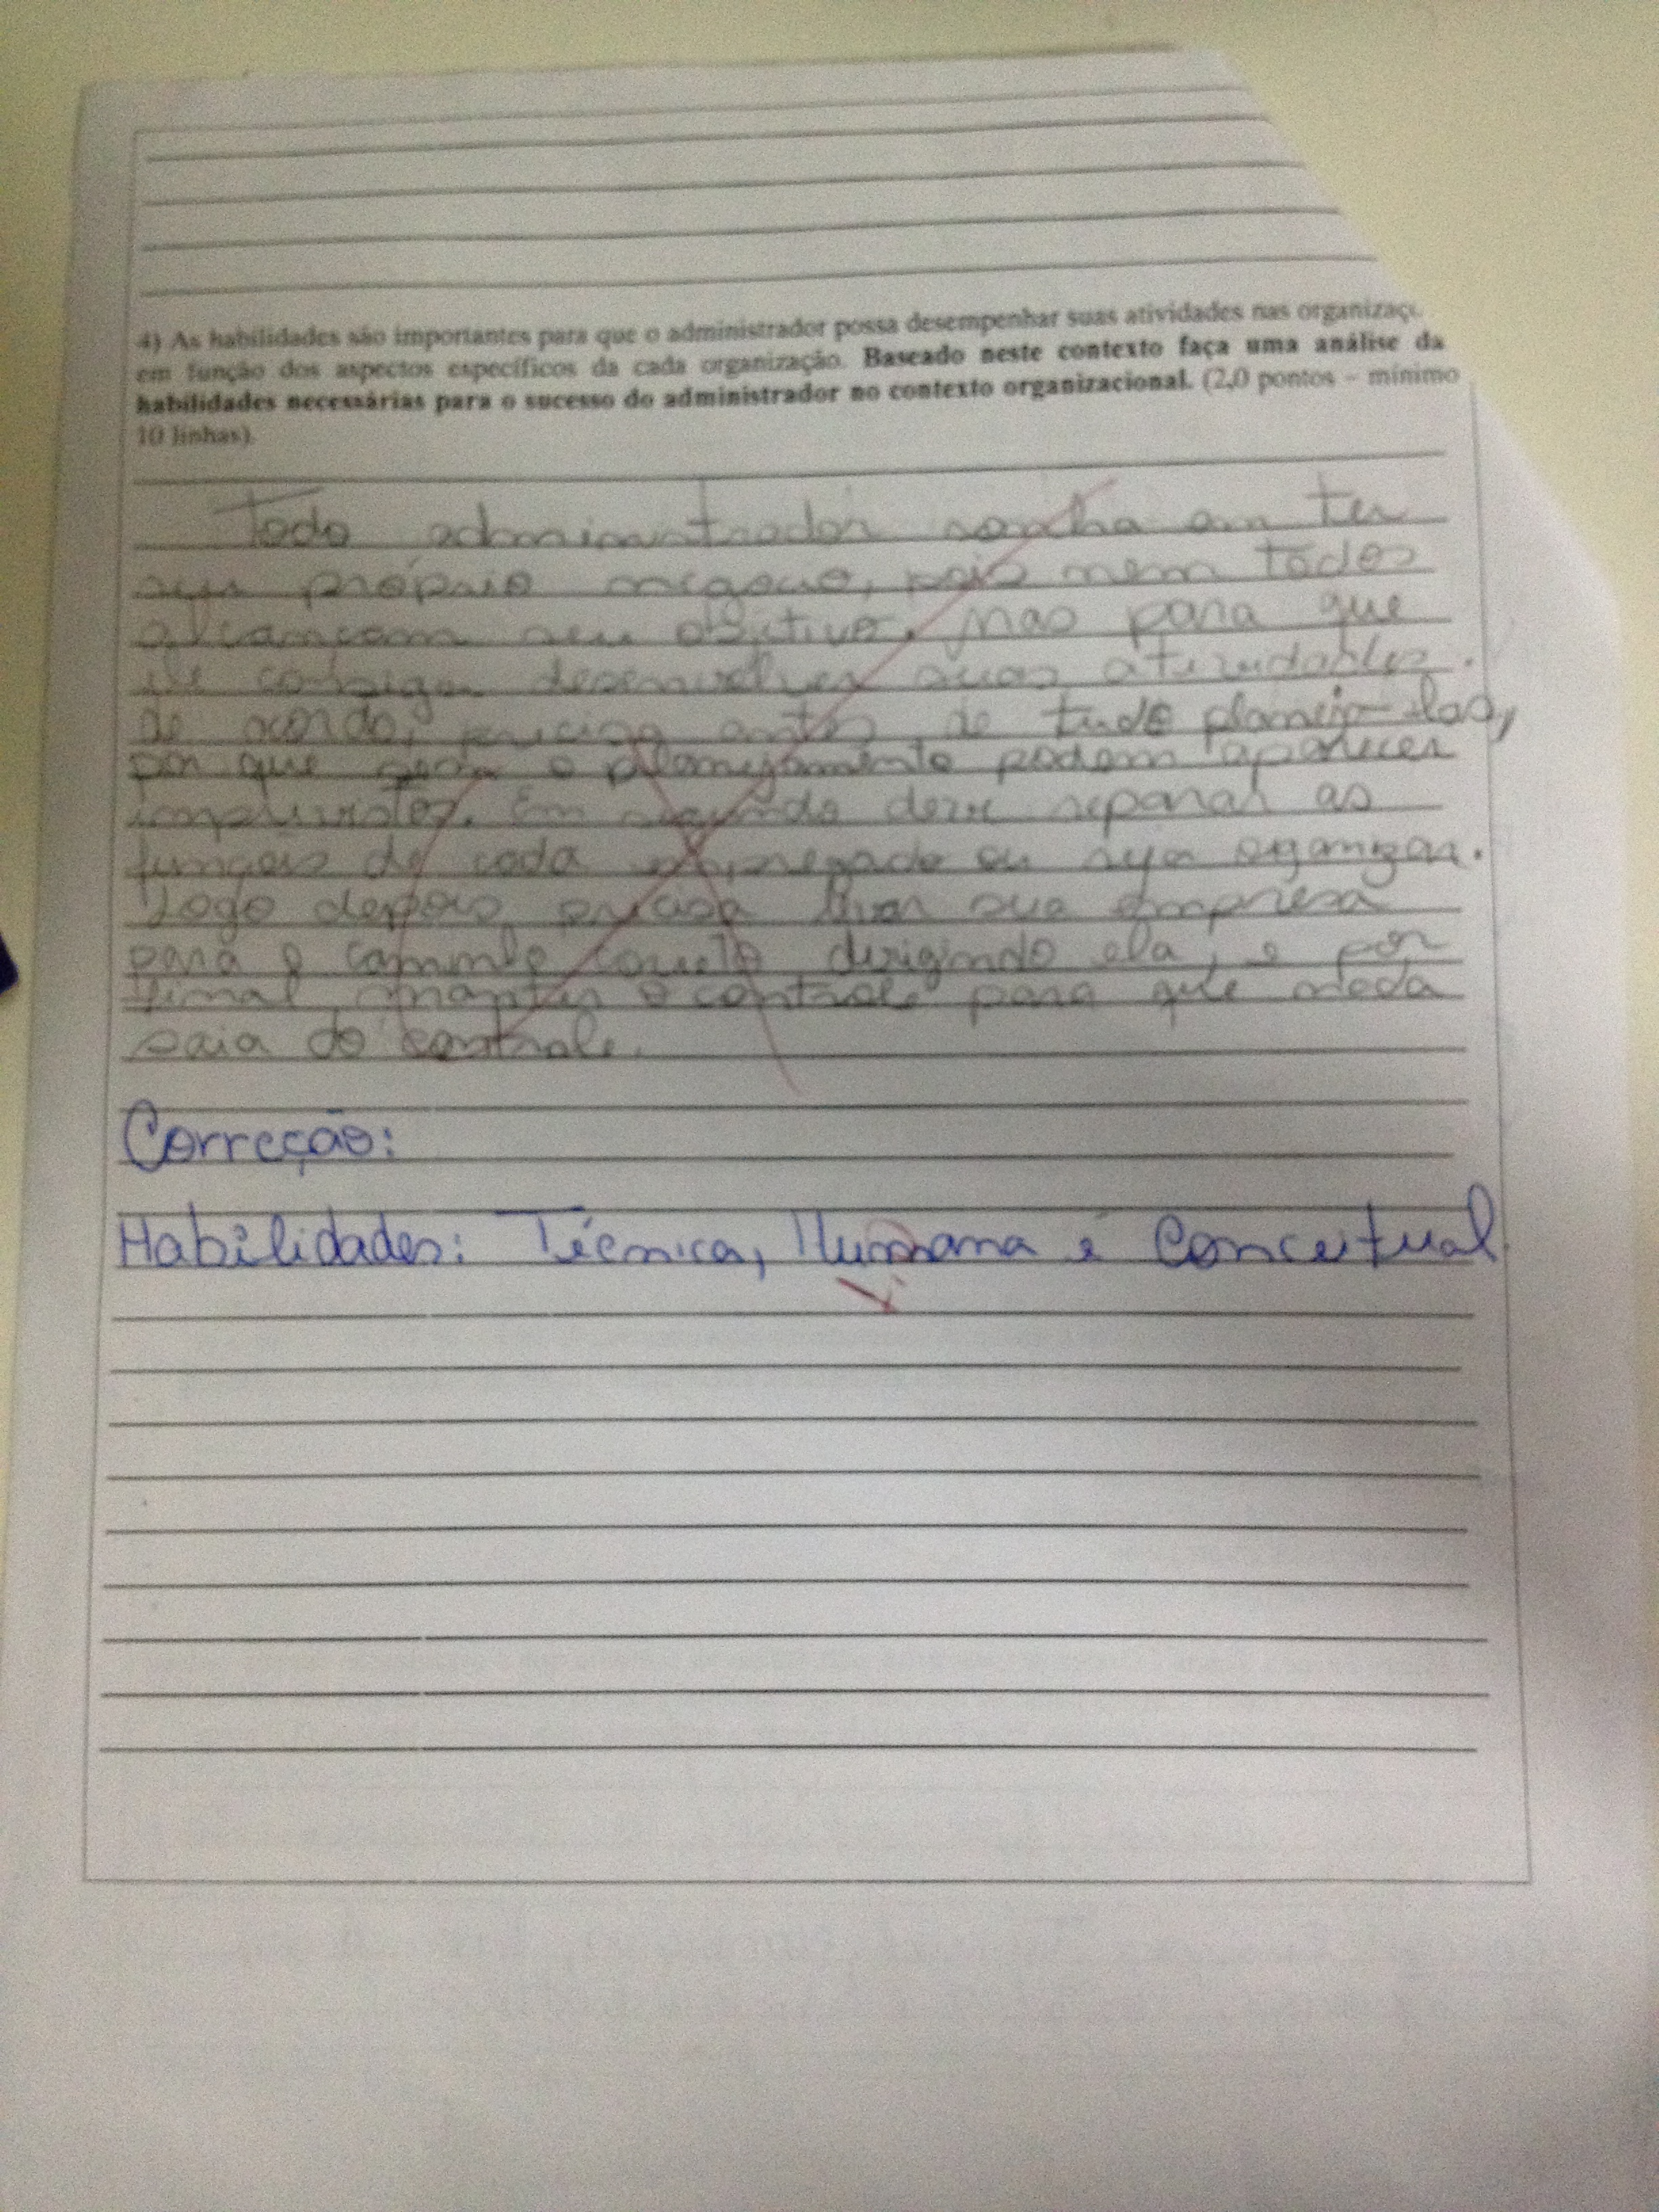 4) As habilidades são importantes para que o administrador possa desempenhar suas atividades nas organizaçõ
em função dos aspectos específicos da cada organização. Baseado neste contexto faça uma análise da
habilidades necessárias para o sucesso do administrador no contexto organizacional. (2,0 pontos – mínimo
10 linhas).
Todo administrador sonha em ter
seu próprio negocio, pois nem todos
alcançam seu objetivo. Mas para que
ele consiga desenvolver suas atividades
de acordo, precisa antes de tudo planeja-las,
por que o planejamento podem aparecer
imprevistos. Em segundo deve separar as
funçois de cada empregado ou seja organizar.
Logo depois precisa levar sua empresa
para o caminho correto dirigindo ela, e por
final manter o controle para que nada
saia do controle.
Correção:
Habilidades: Técnica, Humana e Conceitual